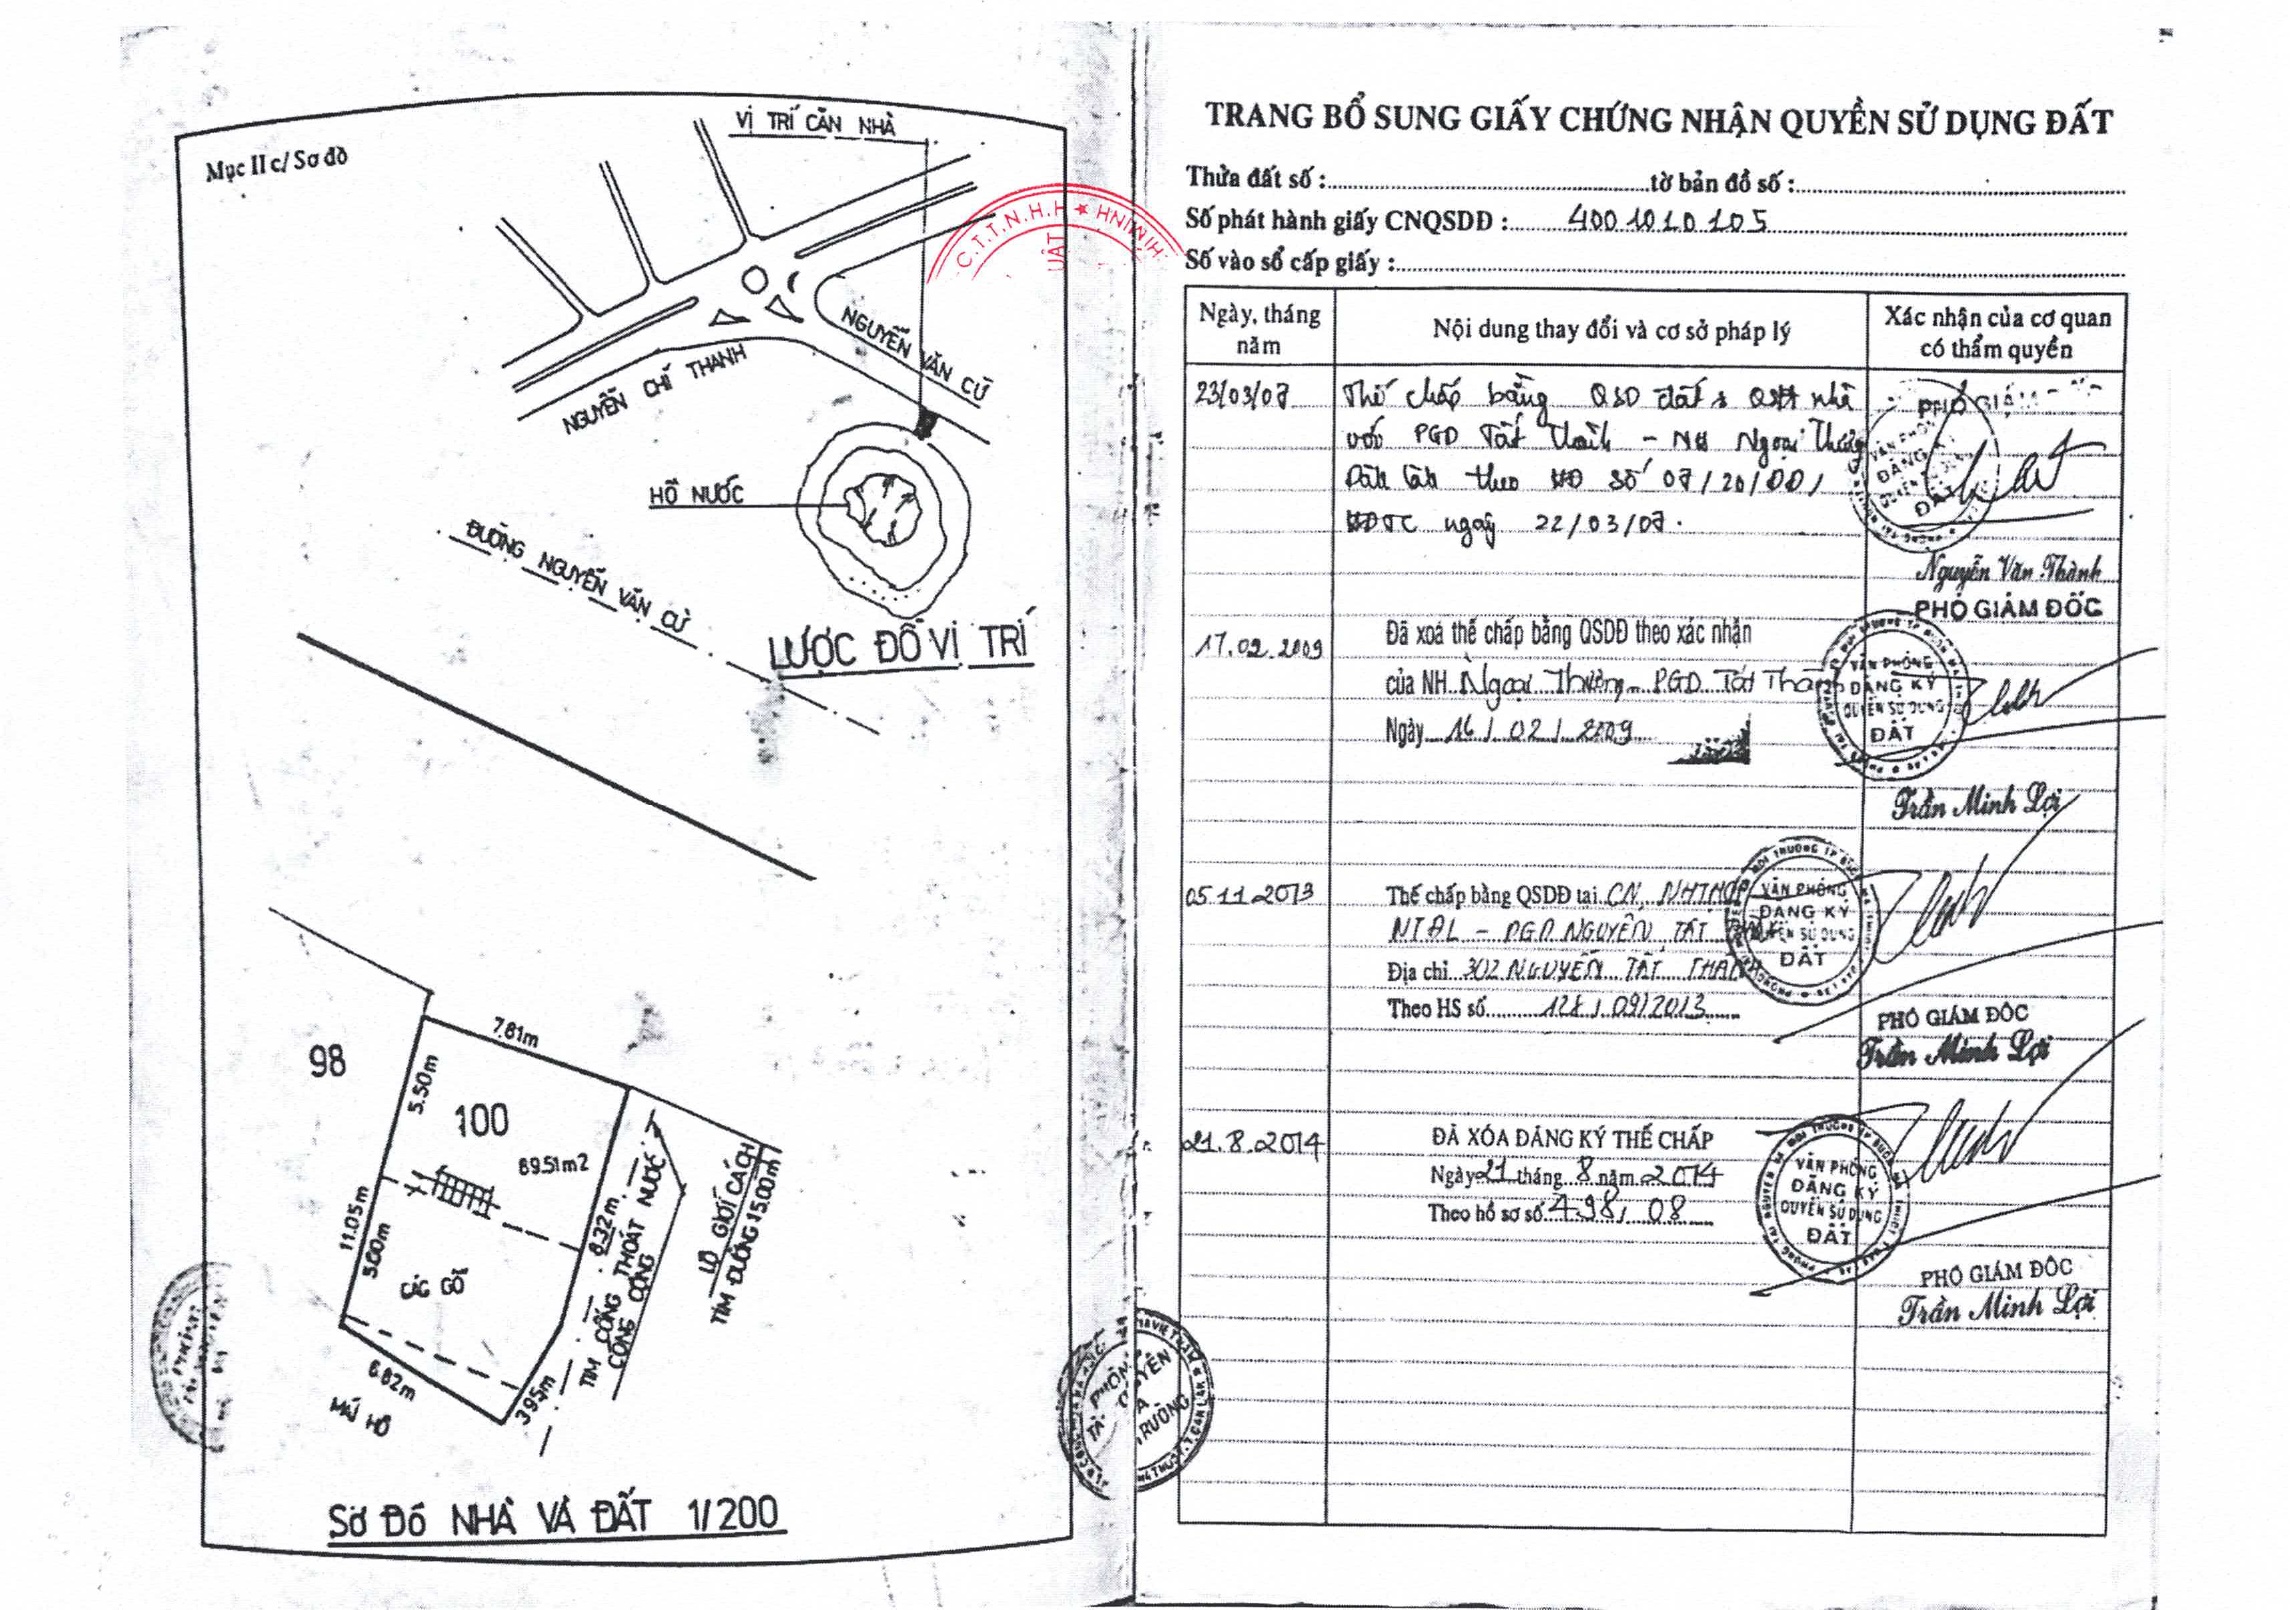 Mục II c/ Sơ đồ
VỊ TRÍ CĂN NHÀ
NGUYỄN VĂN CỪ
NGUYỄN CHÍ THANH
HỒ NƯỚC
ĐƯỜNG NGUYỄN VĂN CỪ
LƯỢC ĐỒ VỊ TRÍ
98
7.81m
5.50m
100
89.51m2
11.05m
5.00m
CÁC GỖ
8.32m
TIM CỐNG THOÁT NƯỚC
CÔNG CỘNG
LỘ GIỚI CÁCH
TIM ĐƯỜNG 15.00m
6.82m
3.95m
SƠ ĐỒ NHÀ VÀ ĐẤT 1/200
C.T.T.N.H.H ★
TRANG BỔ SUNG GIẤY CHỨNG NHẬN QUYỀN SỬ DỤNG ĐẤT
Thửa đất số : tờ bản đồ số :
Số phát hành giấy CNQSDĐ : 4001010105
Số vào sổ cấp giấy :
Ngày, tháng năm
Nội dung thay đổi và cơ sở pháp lý
Xác nhận của cơ quan có thẩm quyền
23/03/07
Thế chấp bằng QSD đất & QSH nhà
với PGD Tất Thành - NH Ngoại Thương
theo HĐ số 07/20/
HĐTC ngày 22/03/07.
VĂN PHÒNG
ĐĂNG KÝ
ĐẤT
Nguyễn Văn Thành
PHÓ GIÁM ĐỐC
17.02.2009
Đã xoá thế chấp bằng QSDĐ theo xác nhận
của NH Ngoại Thương PGD Tất Thành
Ngày 16/02/2009
VĂN PHÒNG
ĐĂNG KÝ
QUYỀN SỬ DỤNG
ĐẤT
Trần Minh Lợi
05.11.2013
Thế chấp bằng QSDĐ tại CN
- PGD NGUYỄN TẤT
Địa chỉ 302 NGUYỄN TẤT THÀNH
Theo HS số 128/09/2013
VĂN PHÒNG
ĐĂNG KÝ
QUYỀN SỬ DỤNG
ĐẤT
PHÓ GIÁM ĐỐC
Trần Minh Lợi
21.8.2014
ĐÃ XÓA ĐĂNG KÝ THẾ CHẤP
Ngày 21 tháng 8 năm 2014
Theo hồ sơ số 498, 08
VĂN PHÒNG
ĐĂNG KÝ
QUYỀN SỬ DỤNG
ĐẤT
PHÓ GIÁM ĐỐC
Trần Minh Lợi